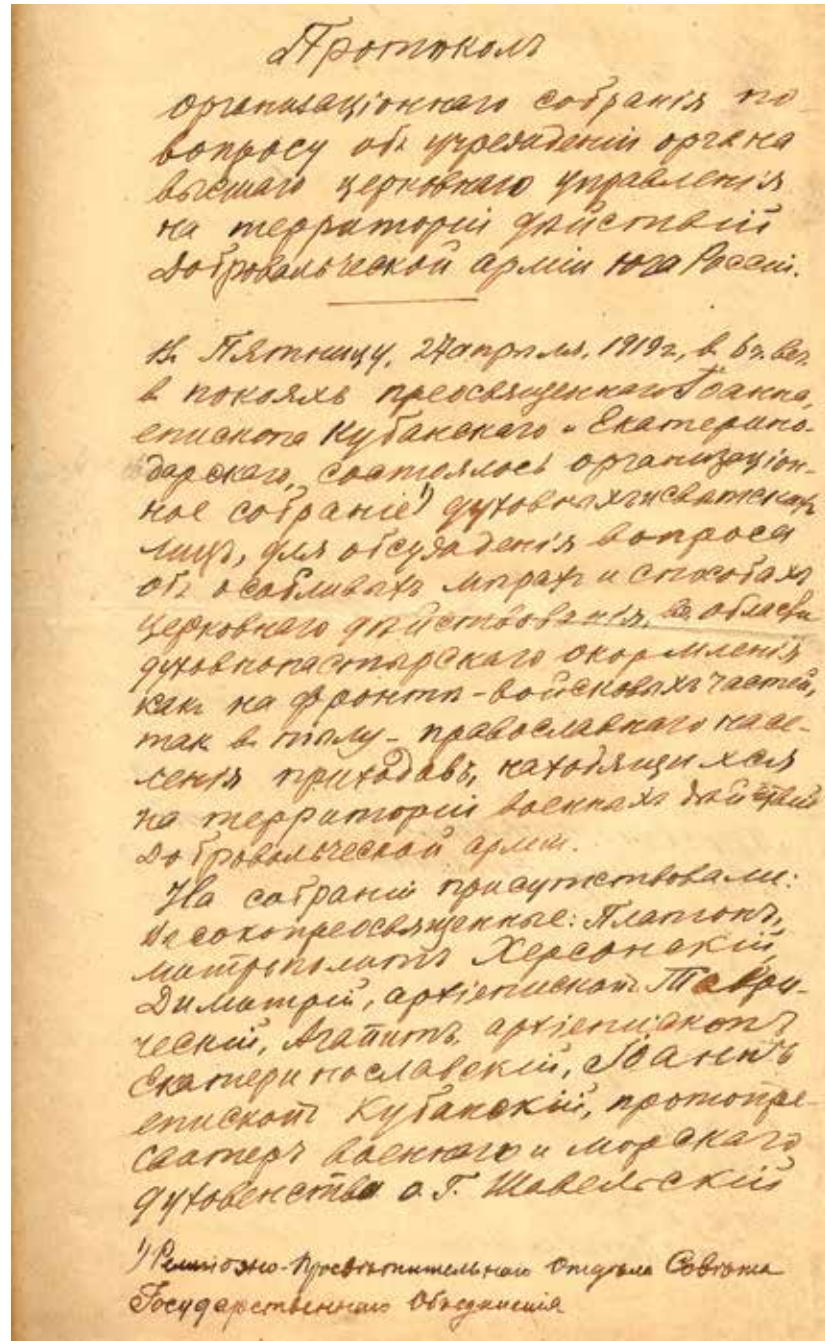 Протоколъ
организаціоннаго собранія по
вопросу объ учрежденіи органа
высшаго церковнаго управленія
на территоріи дѣйствій
Добровольческой арміи юга Россіи.
Въ Пятницу, 27 апрѣля, 1919 г., в 6 ч. веч.
в покояхъ преосвященнаго Іоанна,
епископа Кубанскаго и Екатерино-
дарскаго, состоялось организаціон-
ное собраніе 1) духовныхъ и свѣтскихъ
лицъ, для обсужденія вопроса
объ особливыхъ мѣрахъ и способахъ
церковнаго дѣйствованія, въ области
духовнопастырскаго окормленія
какъ на фронтѣ - войсковыхъ частей,
так в тылу - православнаго насе-
ленія приходовъ, находящихся
на территоріи военныхъ дѣйствій
Добровольческой арміи.
На собраніи присутствовали:
Высокопреосвященные: Платонъ,
митрополитъ Херсонскій,
Димитрій, архіепископъ Таври-
ческій, Агапитъ, архіепископъ
Екатеринославскій, Іоаннъ
епископъ Кубанскій, протопре-
свитеръ военнаго и морскаго
духовенства о. Г. Шавельскій
1) Религіозно-Просвѣтительнаго Отдѣла Совѣта
Государственнаго Объединенія